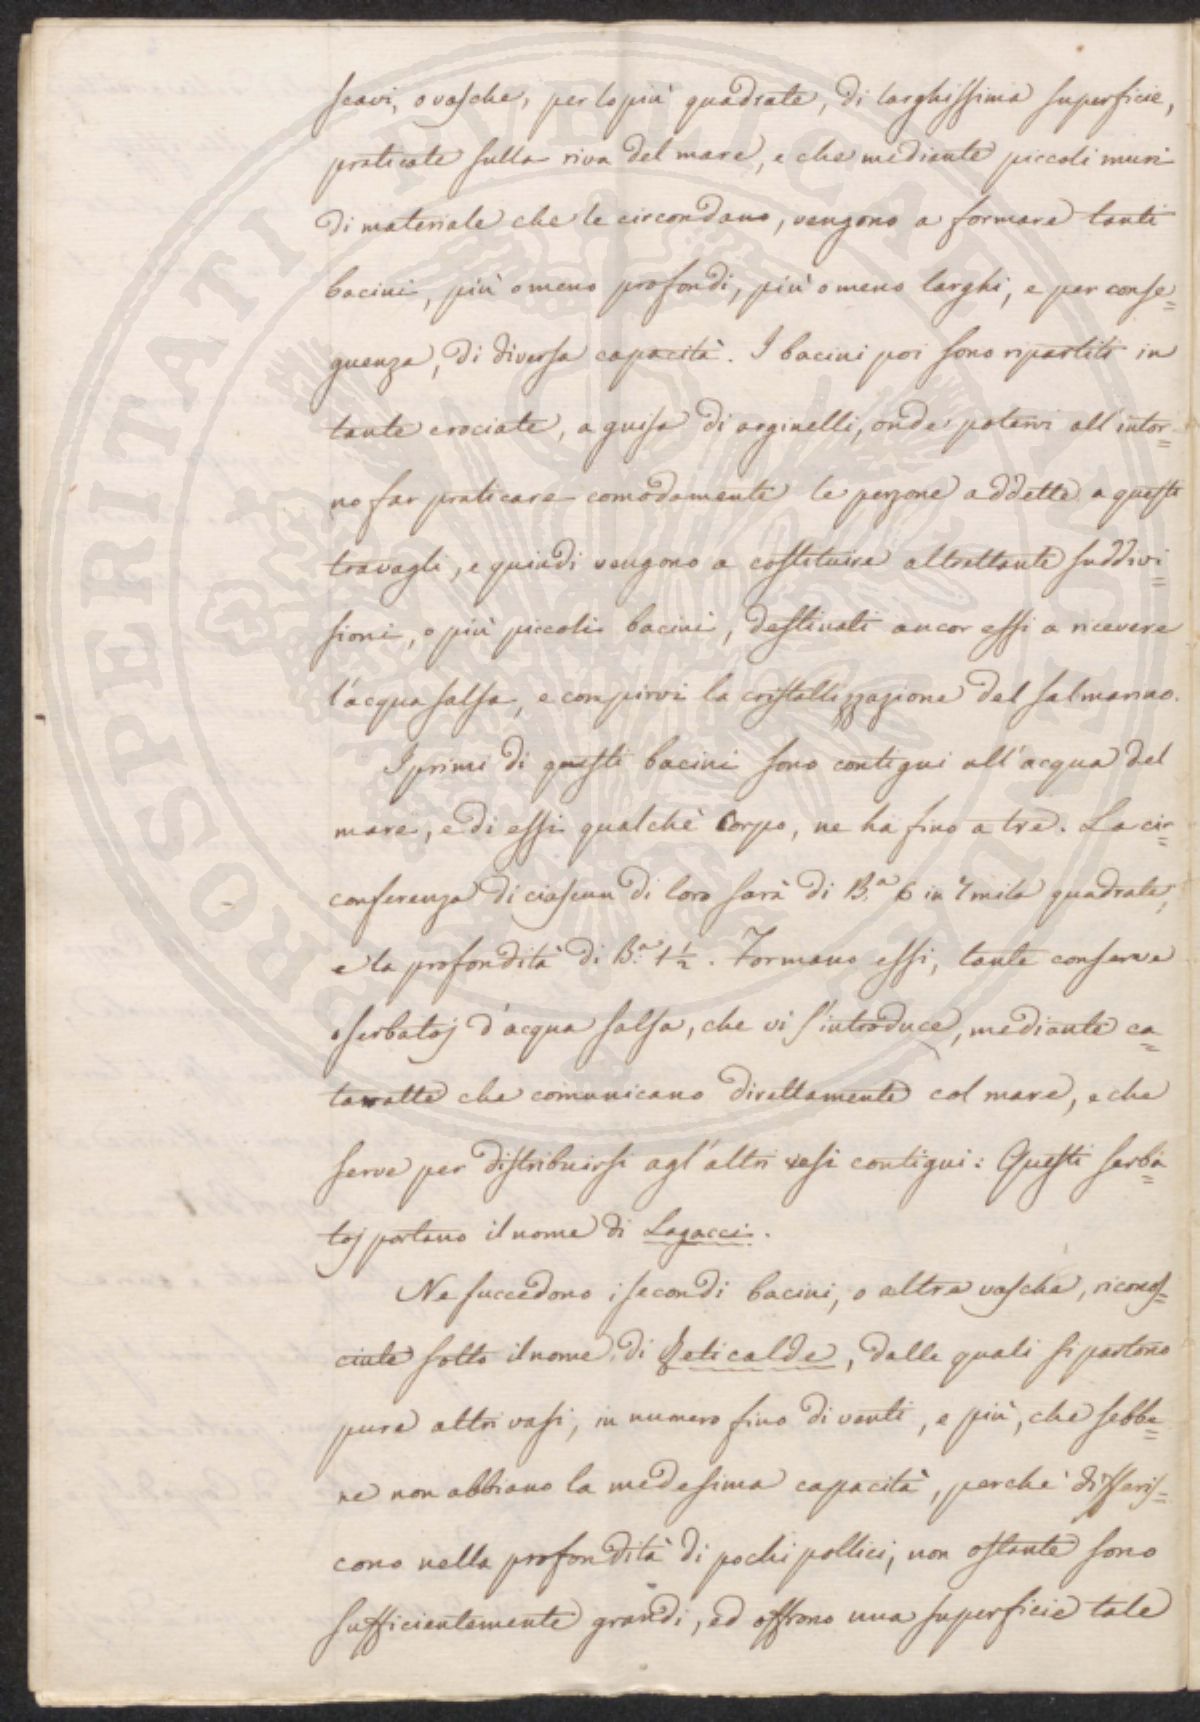 scavi, o vasche, per lo più quadrate, di larghissima superficie,
praticate sulla riva del mare, e che mediante piccoli muri
di materiale che le circondano, vengono a formare tanti
bacini, più o meno profondi, più o meno larghi, e per conse=
guenza, di diversa capacità. I bacini poi sono ripartiti in
tante crociate, a guisa di arginelli, onde potervi all'intor=
no far praticare comodamente le persone addette a questi
travagli, e quindi vengono a costituire altrettante suddivi=
sioni, o più piccoli bacini, destinati ancor essi a ricevere
l'acqua salsa, e compirvi la cristallizzazione del sal marino.
I primi di questi bacini sono contigui all'acqua del
mare, e di essi qualchè Corpo, ne ha fino a tre. La cir=
conferenza di ciascun di loro sarà di B.ª 6 in 7 mila quadrate;
e la profondità di B.ª 1½. Formano essi, tante conserve
o serbatoj d'acqua salsa, che vi s'introduce, mediante ca=
taratte che comunicano direttamente col mare, e che
serve per distribuirsi agl'altri vasi contigui: Questi serba=
toj portano il nome di Lagacci.
Ne succedono i secondi bacini, o altre vasche, riconos=
ciute sotto il nome di Reticalde, dalle quali si partono
pure altri vasi, in numero fino di venti, e più, che sebbe=
ne non abbiano la medesima capacità, perchè differis=
cono nella profondità di pochi pollici, non ostante sono
sufficientemente grandi, ed offrono una superficie tale
PROSPERITATI PUBLICAE AUGENDAE